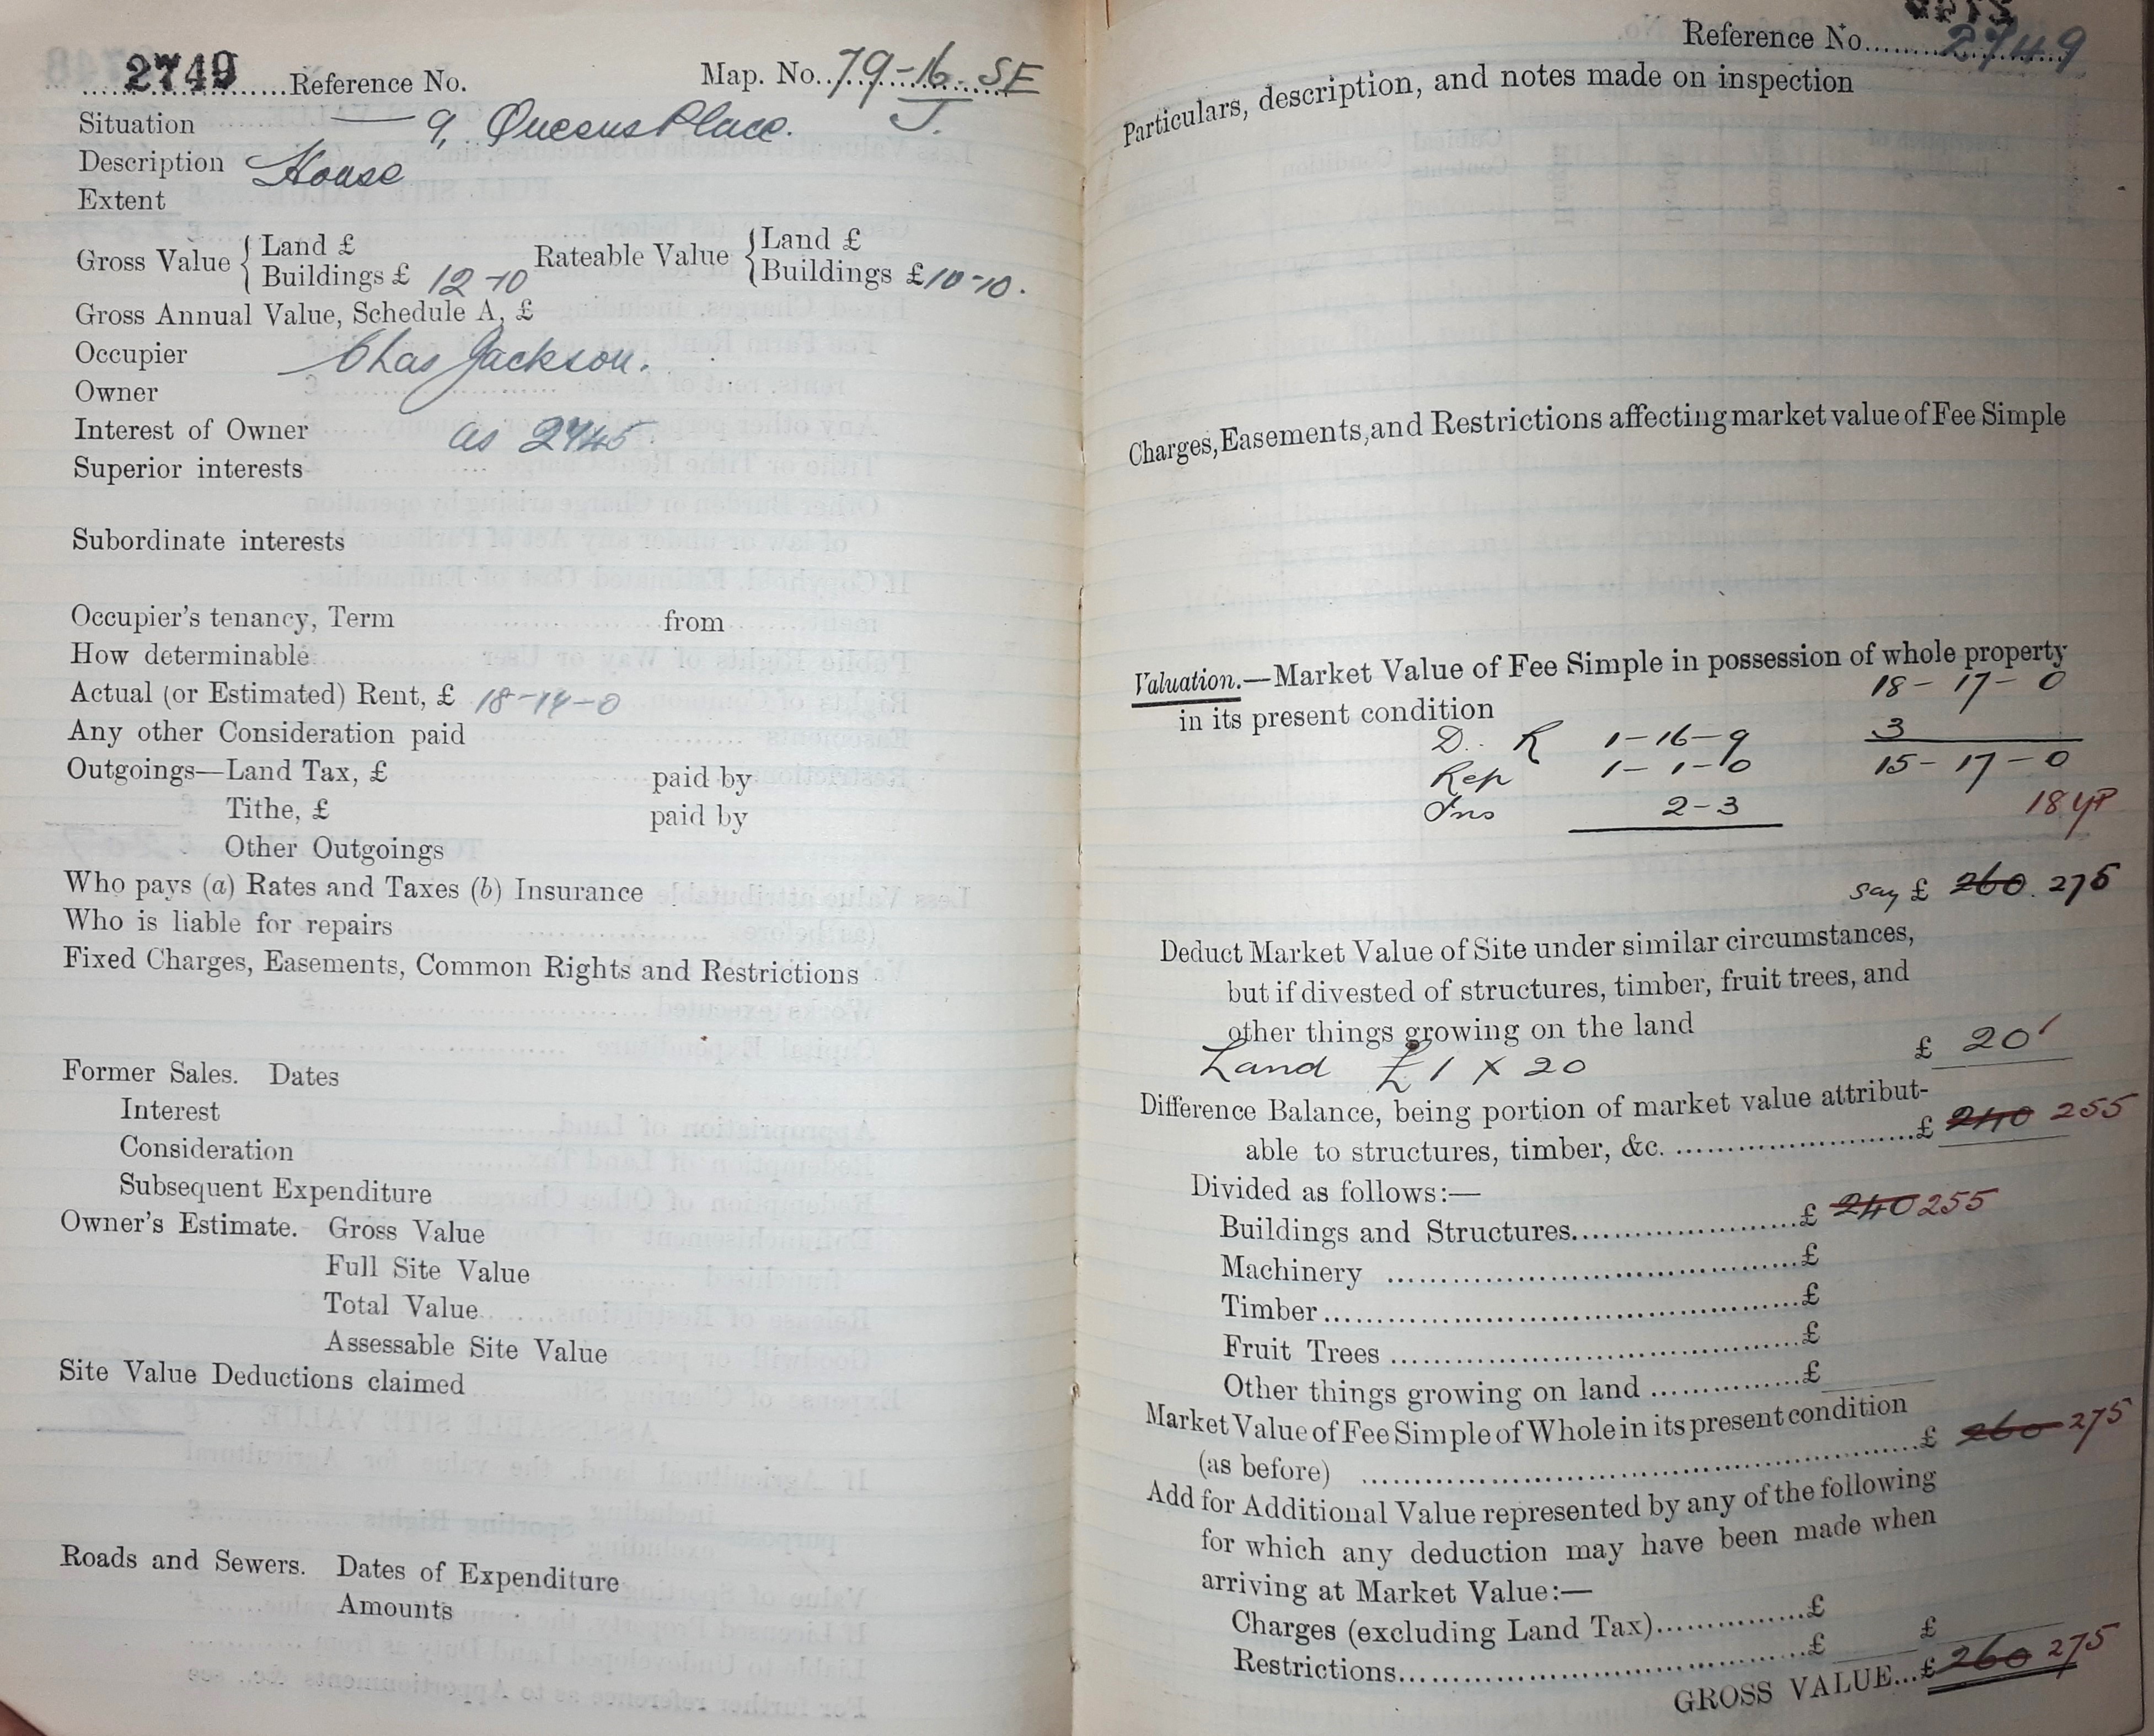 2749 Reference No. Map. No. 79-16. SE
J.
Situation — 9, Queens Place.
Description House
Extent
Gross Value { Land £ Rateable Value { Land £
Buildings £ 12-10 Buildings £ 10-10.
Gross Annual Value, Schedule A, £
Occupier Chas Jackson.
Owner
Interest of Owner as 2745
Superior interests
Subordinate interests
Occupier's tenancy, Term from
How determinable
Actual (or Estimated) Rent, £ 18-17-0
Any other Consideration paid
Outgoings—Land Tax, £ paid by
Tithe, £ paid by
Other Outgoings
Who pays (a) Rates and Taxes (b) Insurance
Who is liable for repairs
Fixed Charges, Easements, Common Rights and Restrictions
Former Sales. Dates
Interest
Consideration
Subsequent Expenditure
Owner's Estimate. Gross Value
Full Site Value
Total Value
Assessable Site Value
Site Value Deductions claimed
Roads and Sewers. Dates of Expenditure
Amounts
Reference No. 2749
Particulars, description, and notes made on inspection
Charges, Easements, and Restrictions affecting market value of Fee Simple
Valuation.—Market Value of Fee Simple in possession of whole property
in its present condition 18-17-0
D. R 1-16-9 3
Rep 1-1-0 15-17-0
Ins 2-3 18 YP
say £ 260. 275
Deduct Market Value of Site under similar circumstances,
but if divested of structures, timber, fruit trees, and
other things growing on the land
Land £1 x 20 £ 20
Difference Balance, being portion of market value attribut-
able to structures, timber, &c. £ 240 255
Divided as follows:—
Buildings and Structures £ 240 255
Machinery £
Timber £
Fruit Trees £
Other things growing on land £
Market Value of Fee Simple of Whole in its present condition
(as before) £ 260 275
Add for Additional Value represented by any of the following
for which any deduction may have been made when
arriving at Market Value:—
Charges (excluding Land Tax) £
Restrictions £ £
GROSS VALUE...£ 260 275